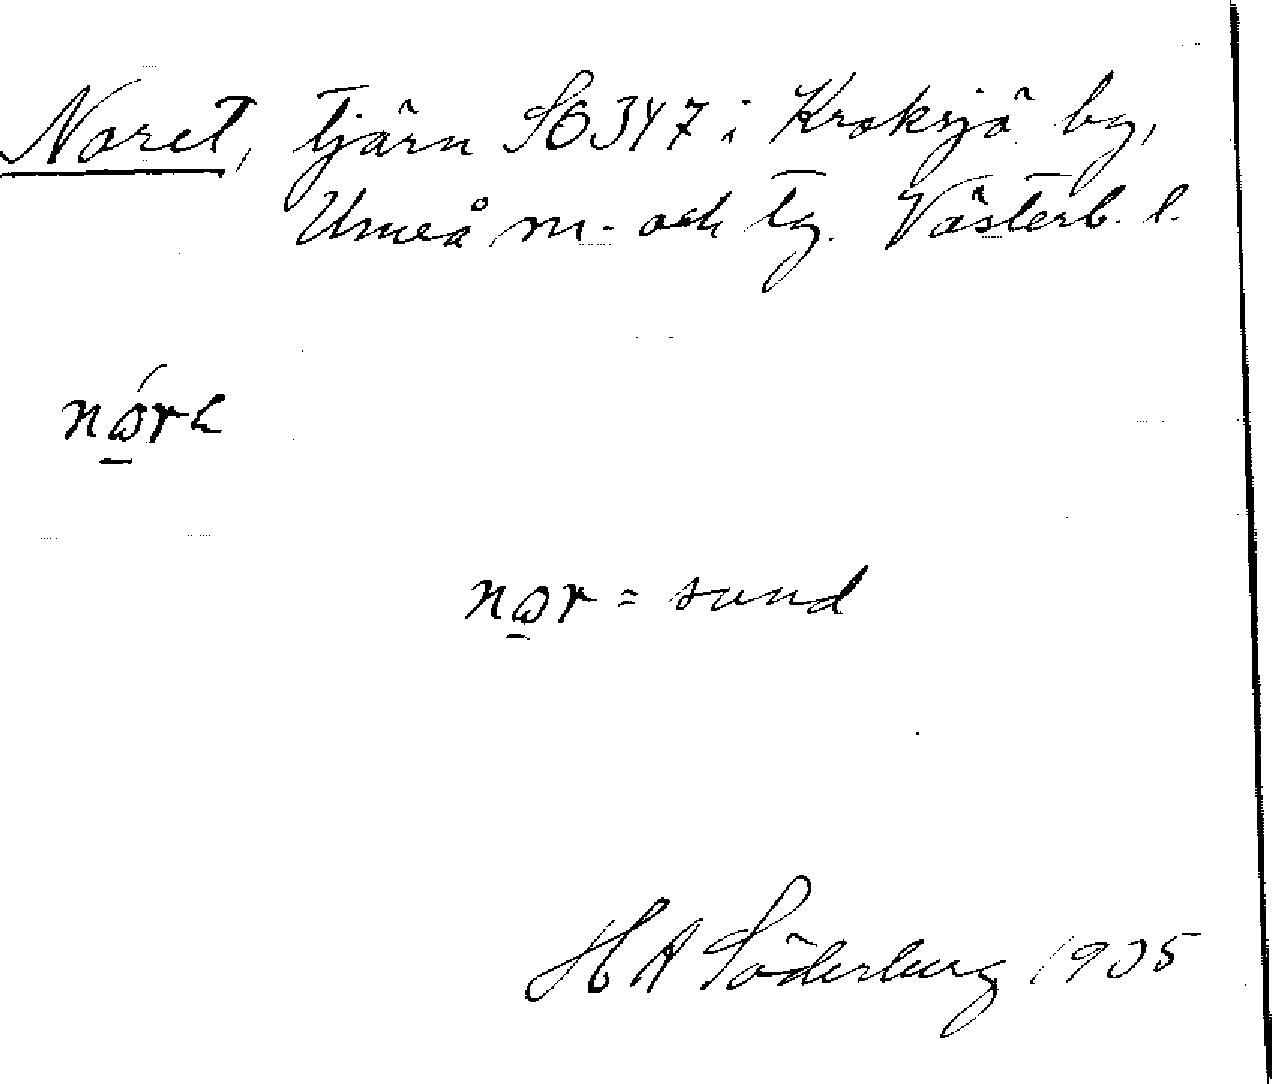 Noret, tjärn S6347 i Kroksjö by,
Umeå m. och tg. Västerb. l.
nǿ̱rɛ
nø̱r = sund
H A Söderberg 1905